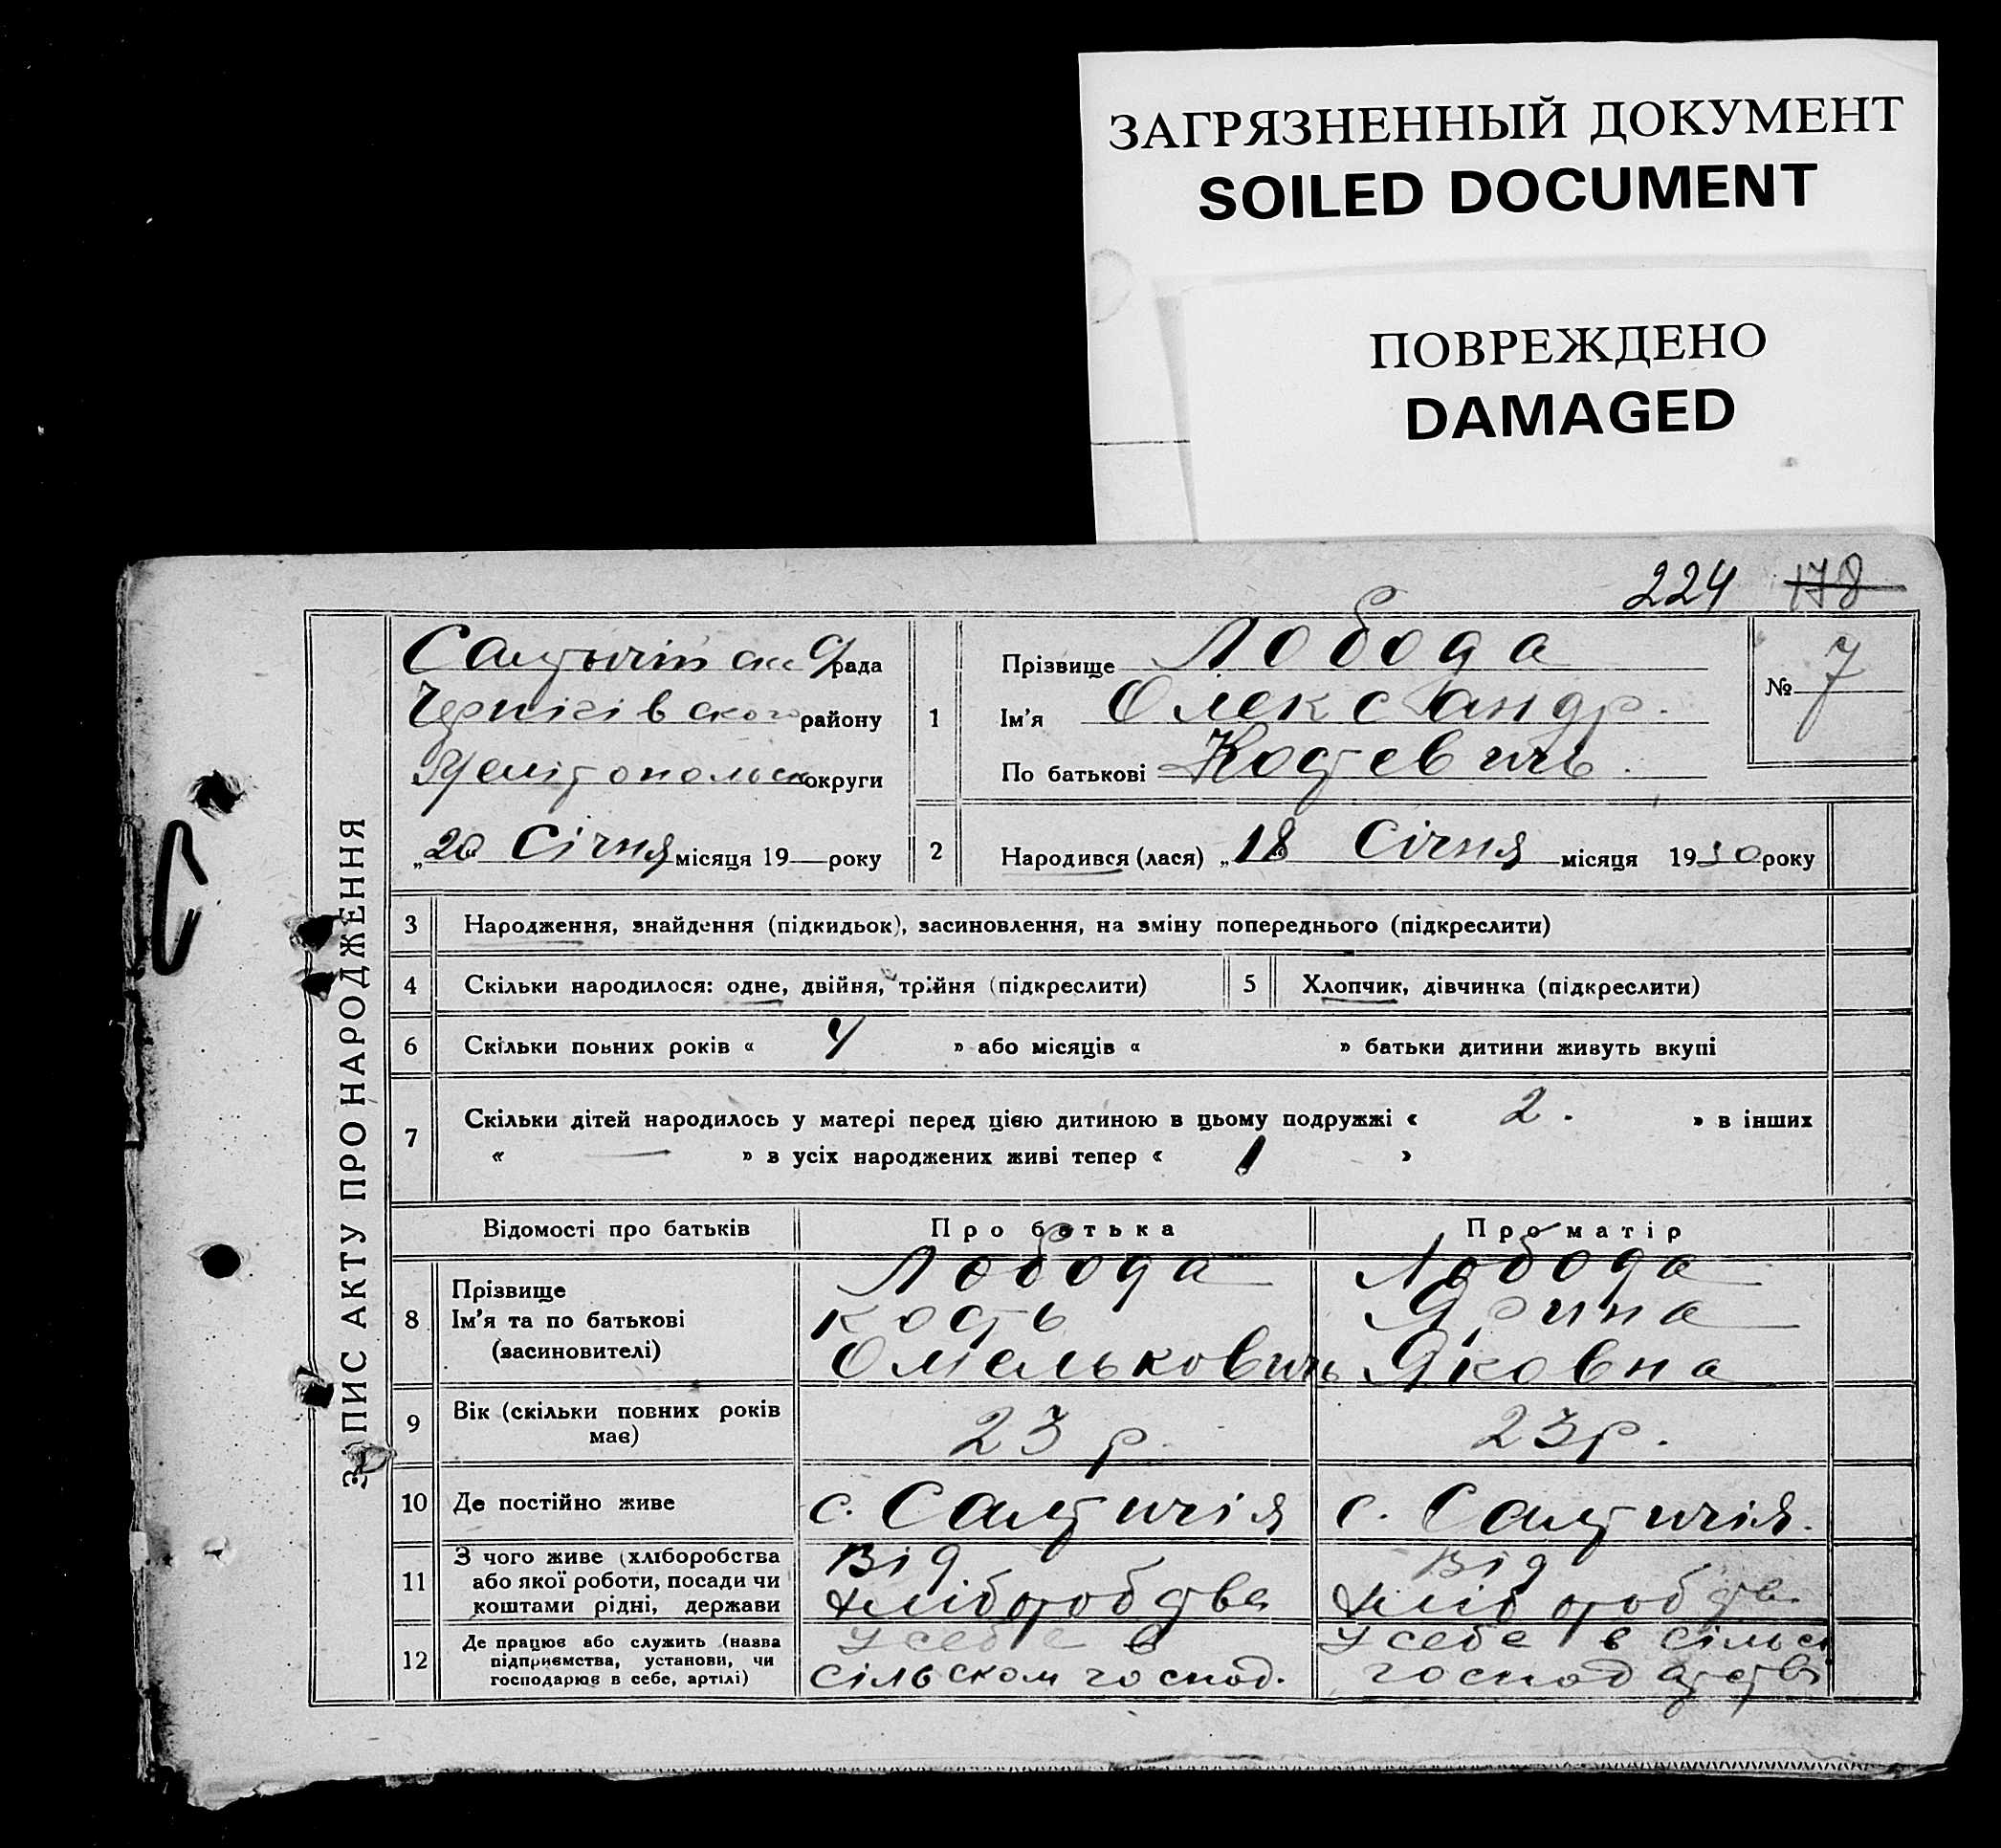 ЗАГРЯЗНЕННЫЙ ДОКУМЕНТ
SOILED DOCUMENT
ПОВРЕЖДЕНО
DAMAGED
224 178
ЗАПИС АКТУ ПРО НАРОДЖЕННЯ
рада
Чернігівського району
Мелітопольск округи
„20 Січня місяця 19— року
1
Прізвище Лобода
Ім'я Олександр.
По батькові Костевичь.
№ 7
2
Народився (лася) „18 Січня місяця 1930 року
3 Народження, знайдення (підкидьок), засиновлення, на зміну попереднього (підкреслити)
4 Скільки народилося: одне, двійня, трійня (підкреслити) 5 Хлопчик, дівчинка (підкреслити)
6 Скільки повних років « 4 » або місяців « » батьки дитини живуть вкупі
7 Скільки дітей народилось у матері перед цією дитиною в цьому подружжі « 2. » в інших
« — » з усіх народжених живі тепер « 1 »
Відомості про батьків Про батька Про матір
8 Прізвище Лобода Лобода
Ім'я та по батькові Кость Ярина
(засиновителі) Омельковичь Яковна
9 Вік (скільки повних років має) 23 р. 23 р.
10 Де постійно живе с. Салтичія с. Салтичія.
11 З чого живе (хліборобства або якої роботи, посади чи коштами рідні, держави
Від хліборобства Від хліборобств.
12 Де працює або служить (назва підприємства, установи, чи господарює в себе, артілі)
У себе в сільском господ. У себе в сільс